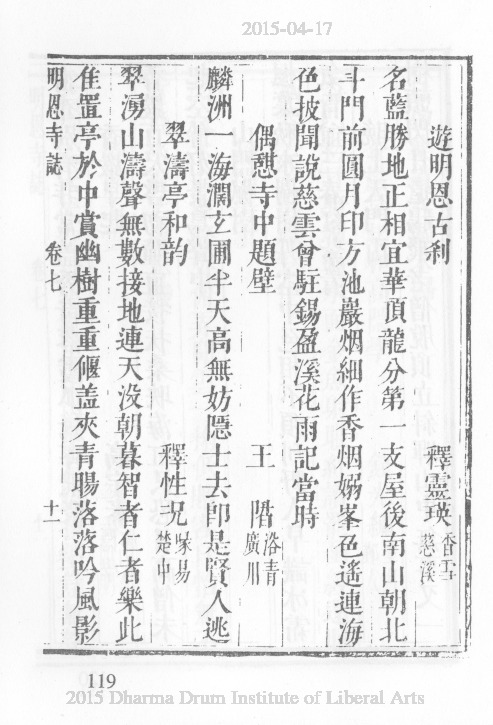 2015-04-17
遊明恩古刹　釋靈瑛 香雪 慈溪
名藍勝地正相宜華頂龍分第一支屋後南山朝北
斗門前圓月印方池巖烟細作香烟嫋峯色遙連海
色披聞說慈雲曾駐錫盈溪花雨記當時
偶憇寺中題壁　王 洛青 廣川
麟洲一海濶玄圃半天高無妨隱士去卽是賢人逃
翠濤亭和韵　釋性 象易 楚中
翠湧山濤聲無數接地連天没朝暮智者仁者樂此
隹置亭於中賞幽樹重重偃盖夾青暘落落吟風影
明恩寺誌　卷七　十一
119
2015 Dharma Drum Institute of Liberal Arts